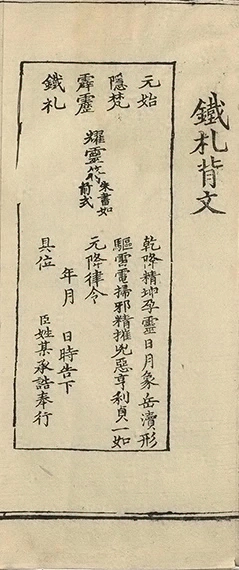 鐵札背文
元始
隱梵
霹靂
鐵札
耀靈符朱書如前式
乾降精坤孕靈日月象岳瀆形
驅雷電掃邪精摧兇惡亨利貞一如
元降律令
年月 日時告下
具位 臣姓某承誥奉行